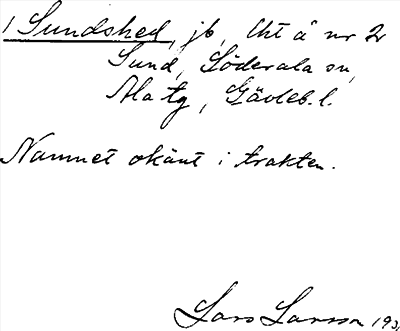 1 Sundshed, jb, Cht å nr 2
Sund, Söderala sn,
Ala tg, Gävleb. l.
Namnet okänt i trakten.
Lars Larsson 193